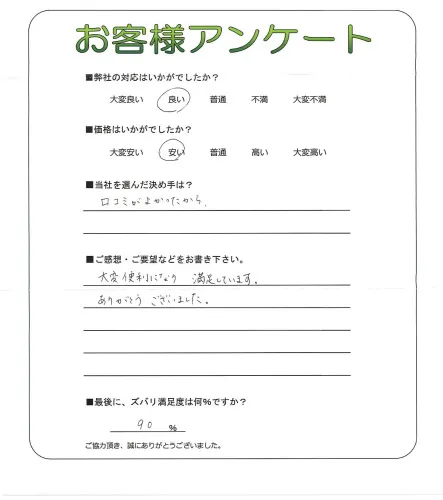 お客様アンケート
■弊社の対応はいかがでしたか？
大変良い 良い 普通 不満 大変不満
■価格はいかがでしたか？
大変安い 安い 普通 高い 大変高い
■当社を選んだ決め手は？
口コミがよかったから。
■ご感想・ご要望などをお書き下さい。
大変便利になり 満足しています。
ありがとう ございました。
■最後に、ズバリ満足度は何%ですか？
90 %
ご協力頂き、誠にありがとうございました。